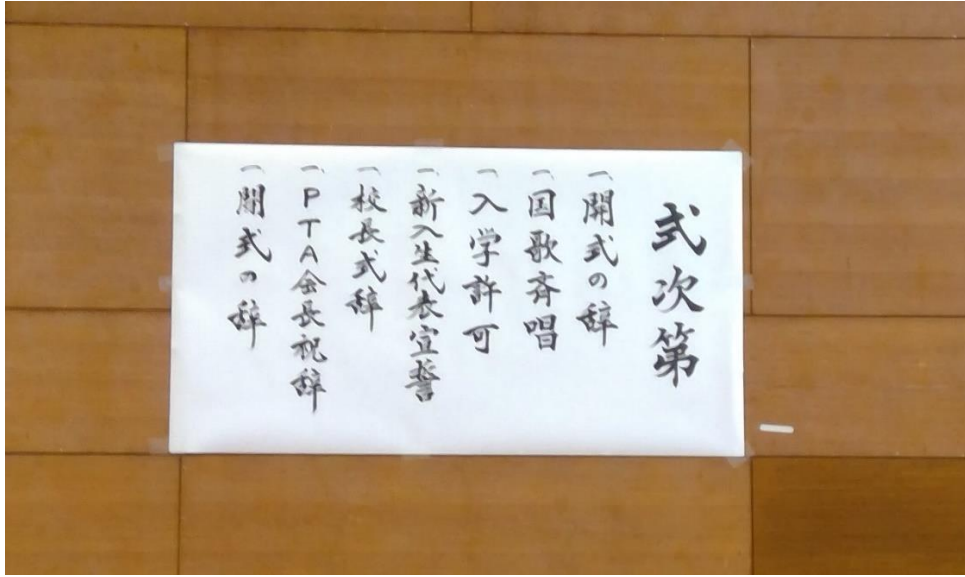 式次第
一、開式の辞
一、国歌斉唱
一、入学許可
一、新入生代表宣誓
一、校長式辞
一、PTA会長祝辞
一、閉式の辞